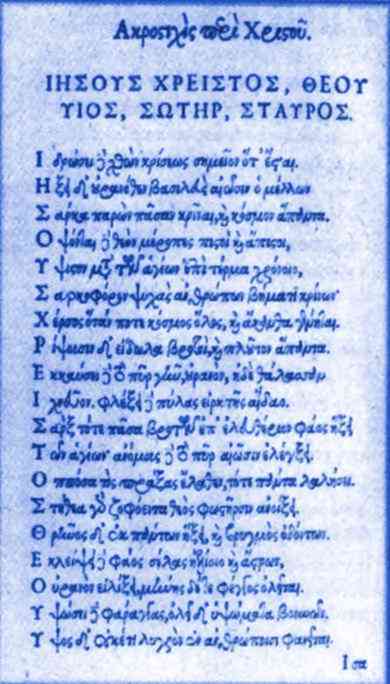 Ακροστιχὶς Χριστοῦ.
ΙΗΣΟΥΣ ΧΡΕΙΣΤΟΣ, ΘΕΟΥ
ΥΙΟΣ, ΣΩΤΗΡ, ΣΤΑΥΡΟΣ.
Ι δρώσει γὰρ χθὼν κρίσεως σημεῖον ὅτ' ἔσται.
Η ξει δ' οὐρανόθεν βασιλεὺς αἰῶσιν ὁ μέλλων
Σ άρκα παρὼν πᾶσαν κρῖναι, καὶ κόσμον ἅπαντα.
Ο ψονται δὲ θεὸν μέροπες πιστοὶ καὶ ἄπιστοι,
Υ ψιστον μετὰ τῶν ἁγίων ἐπὶ τέρμα χρόνοιο,
Σ αρκοφόρον ψυχὰς ἀνθρώπων βήματι κρίνων
Χ έρσος ὅταν ποτε κόσμος ὅλος, καὶ ἄκανθα γένηται.
Ρ ίψωσιν δ' εἴδωλα βροτοὶ, καὶ πλοῦτον ἅπαντα.
Ε κκαύσει δὲ τὸ πῦρ γῆν, οὐρανὸν, ἠδὲ θάλασσαν
Ι φλέξει δὲ πύλας εἱρκτῆς ἀΐδαο.
Σ αρξ τότε πᾶσα βροτῶν ἐπ' ἐλευθέριον φάος ἥξει
Τ ῶν ἁγίων ἀνόμους δὲ τὸ πῦρ αἰῶσιν ἐλέγξει.
Ο ππόσα τὶς πράξας ἔλαθεν, τότε πάντα λαλήσει.
Σ τήθεα γὰρ ζοφόεντα θεὸς φωστῆρσιν ἀνοίξει.
Θ ρῆνος δ' ἐκ πάντων ἥξει, καὶ βρυγμὸς ὀδόντων.
Ε κλείψει δὲ φάος σέλας ἠελίου καὶ ἄστρων,
Ο ὐρανὸν εἱλίξει, μήνης δέ τε φέγγος ὀλεῖται.
Υ ψώσει δὲ φάραγγας, ὀλεῖ δ' ὑψώματα βουνῶν.
Υ ψος δ' οὐκέτι λυγρὸν ἐν ἀνθρώποισι φανεῖται.
Ισα